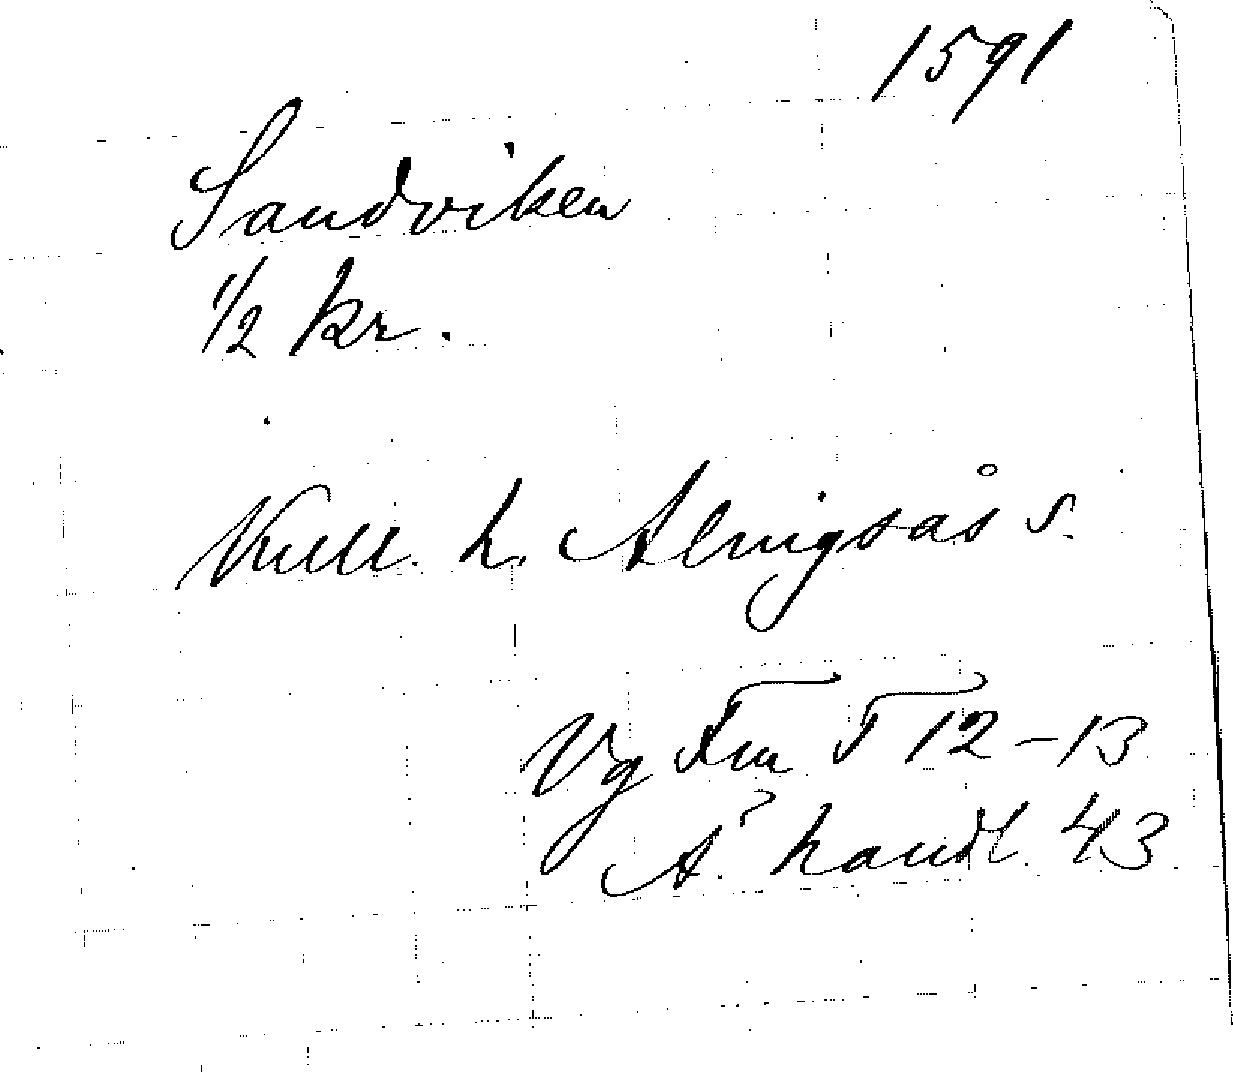 1591
Sandviken
1/2 kr.
Kull. h. Alingsås s.
Vg F:a T 12-13
Å handl. 43